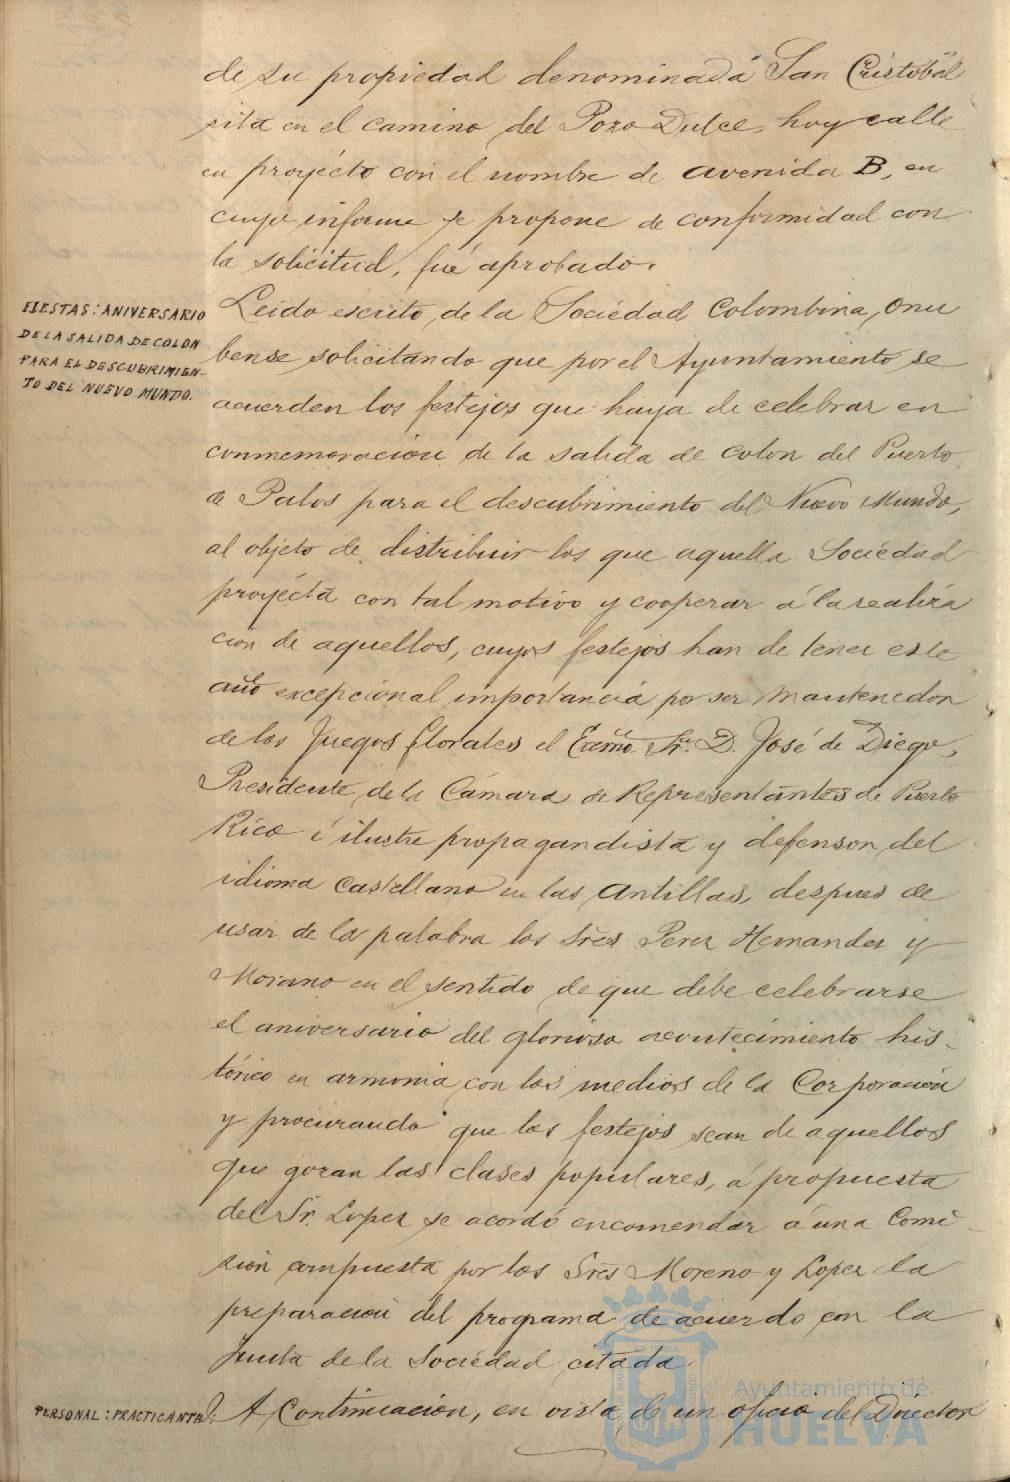 de su propiedad denominada San Cristobal
sita en el camino del Pozo Dulce, hoy calle
en proyécto con el nombre de avenida B, en
cuyo informe se propone de conformidad con
la solicitud, fué aprobado.
FIESTAS: ANIVERSARIO
DE LA SALIDA DE COLON
PARA EL DESCUBRIMIEN-
TO DEL NUEVO MUNDO.
Leido escrito de la Sociédad Colombina, Onu
bense solicitando que por el Ayuntamiento se
acuerden los festejos que haya de celebrar en
conmemoracion de la salida de colon del Puerto
de Palos para el descubrimiento del Nuevo Mundo,
al objeto de distribuir los que aquella Sociédad
proyécta con tal motivo y cooperar á la realiza
cion de aquellos, cuyos festejos han de tener este
año excepcional importancia por ser mantenedor
de los Juegos florales el Excmo Sr. D. José de Diego,
Presidente de la Cámara de Representantes de Puerto
Rico é ilustre propagandista y defensor del
idioma Castellano en las Antillas, despues de
usar de la palabra los Sres Perez Hernandez y
Morano en el sentido de que debe celebrarse
el aniversario del glorioso acontecimiento his-
tórico en armonia con los medios de la Corporación
y procurando que los festejos sean de aquellos
que gozan las clases populares, á propuesta
del Sr. Lopez se acordó encomendar á una Comi-
sión compuesta por los Sres Moreno y Lopez la
preparacion del programa de acuerdo con la
Junta de la Sociedad citada.
PERSONAL: PRACTICANTE:
A Continuacion, en vista de un oficio del Director
Ayuntamiento de
HUELVA